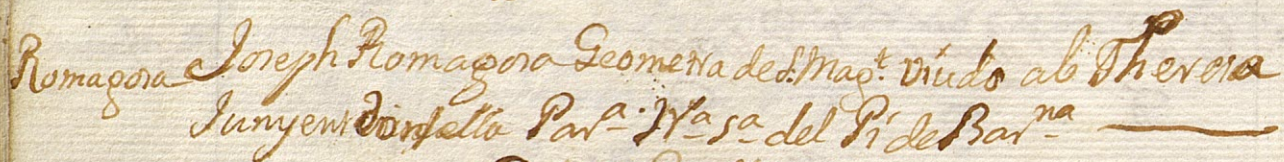 Romagosa Joseph Romagosa Geometra de S. Mag.t viudo ab Theresa
Junyent donsella Par.a N.a S.a del Pi de Bar.na